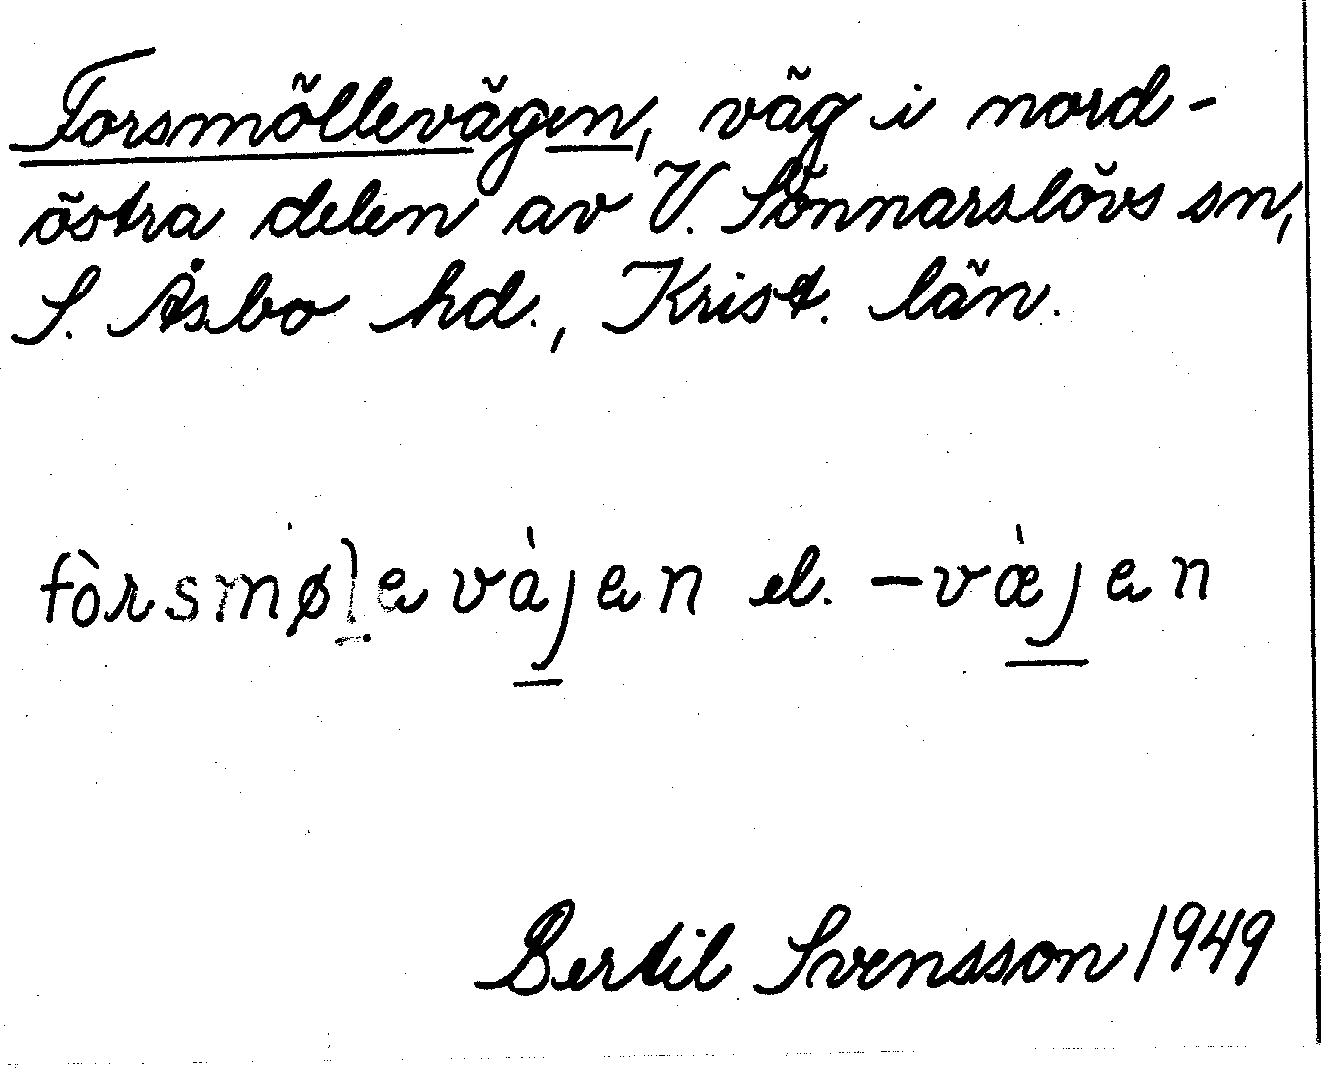 Forsmöllevägen, väg i nord-
östra delen av V. Sönnarslövs sn,
S. Åsbo hd., Krist. län.
fòrsmøḷevàjen el. -væ̀jen
Bertil Svensson 1949